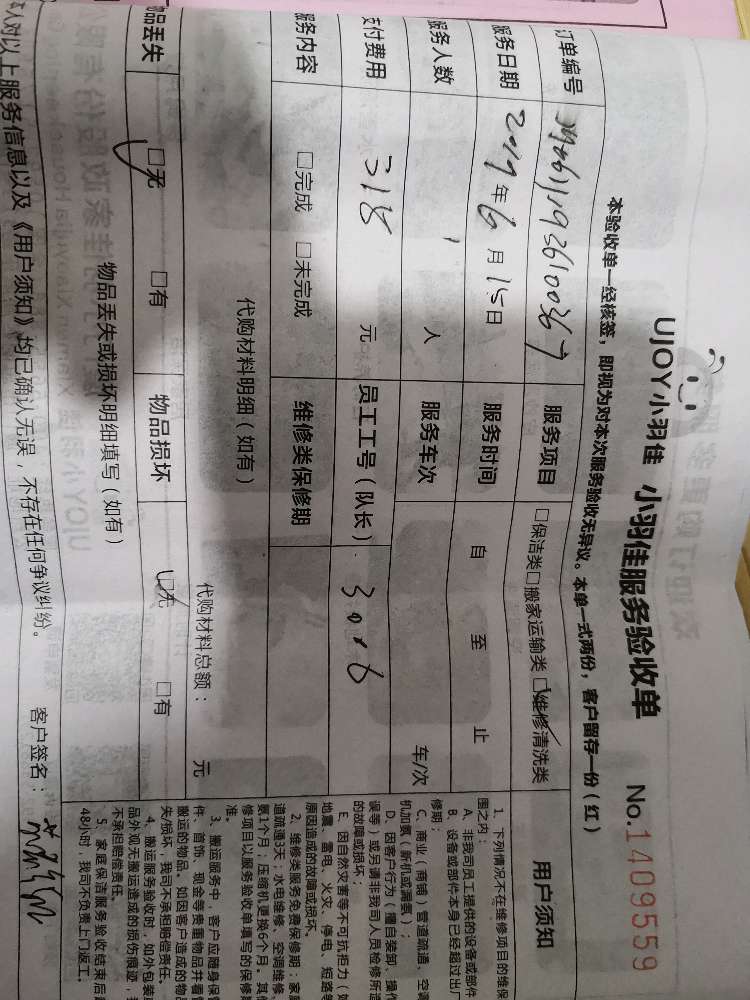 UJOY小羽佳 小羽佳服务验收单 No.1409559
本验收单一经核签，即视为对本次服务验收无异议。本单一式两份，客户留存一份（红）
订单编号 服务项目 □保洁类□搬家运输类□维修清洗类
服务日期 2019年6月15日 服务时间 自 至 止
服务人数 1 人 服务车次 车/次
支付费用 318 元 员工工号（队长） 3006
服务内容 □完成 □未完成 维修类保修期
代购材料明细（如有） 代购材料总额： 元
物品丢失 □无 □有 物品损坏 □无 □有
物品丢失或损坏明细填写（如有）
本人对以上服务信息以及《用户须知》均已确认无误，不存在任何争议纠纷。 客户签名：
用户须知
1、下列情况不在维修项目的维保
围之内：
A、非我司员工提供的设备或部件
B、设备或部件本身已经超过出厂
修期；
C、商业（商铺）管道疏通、空调
机加氨（新机或漏氨）；
D、因客户行为（擅自装卸、操作
误等）或另请非我司人员检修所造
的故障或损坏；
E、因自然灾害等不可抗拒力（如
地震、雷电、火灾、停电、短路等
原因造成的故障或损坏。
2、维修类服务免费保修期：家庭
道疏通3天；水电维修、空调维修、
氨1个月；压缩机更换6个月。其他
修项目以服务验收单填写的保修期
准。
3、搬运服务中，客户应随身保管
件、首饰、现金等贵重物品并看管
搬运的物品。如因客户造成的物品
失/损坏，我司不承担赔偿责任。
4、搬运服务验收时，如外包装
品外观无搬运造成的损伤痕迹，我
不承担赔偿责任。
5、家庭保洁服务验收结束后
48小时，我司不负责上门返工。